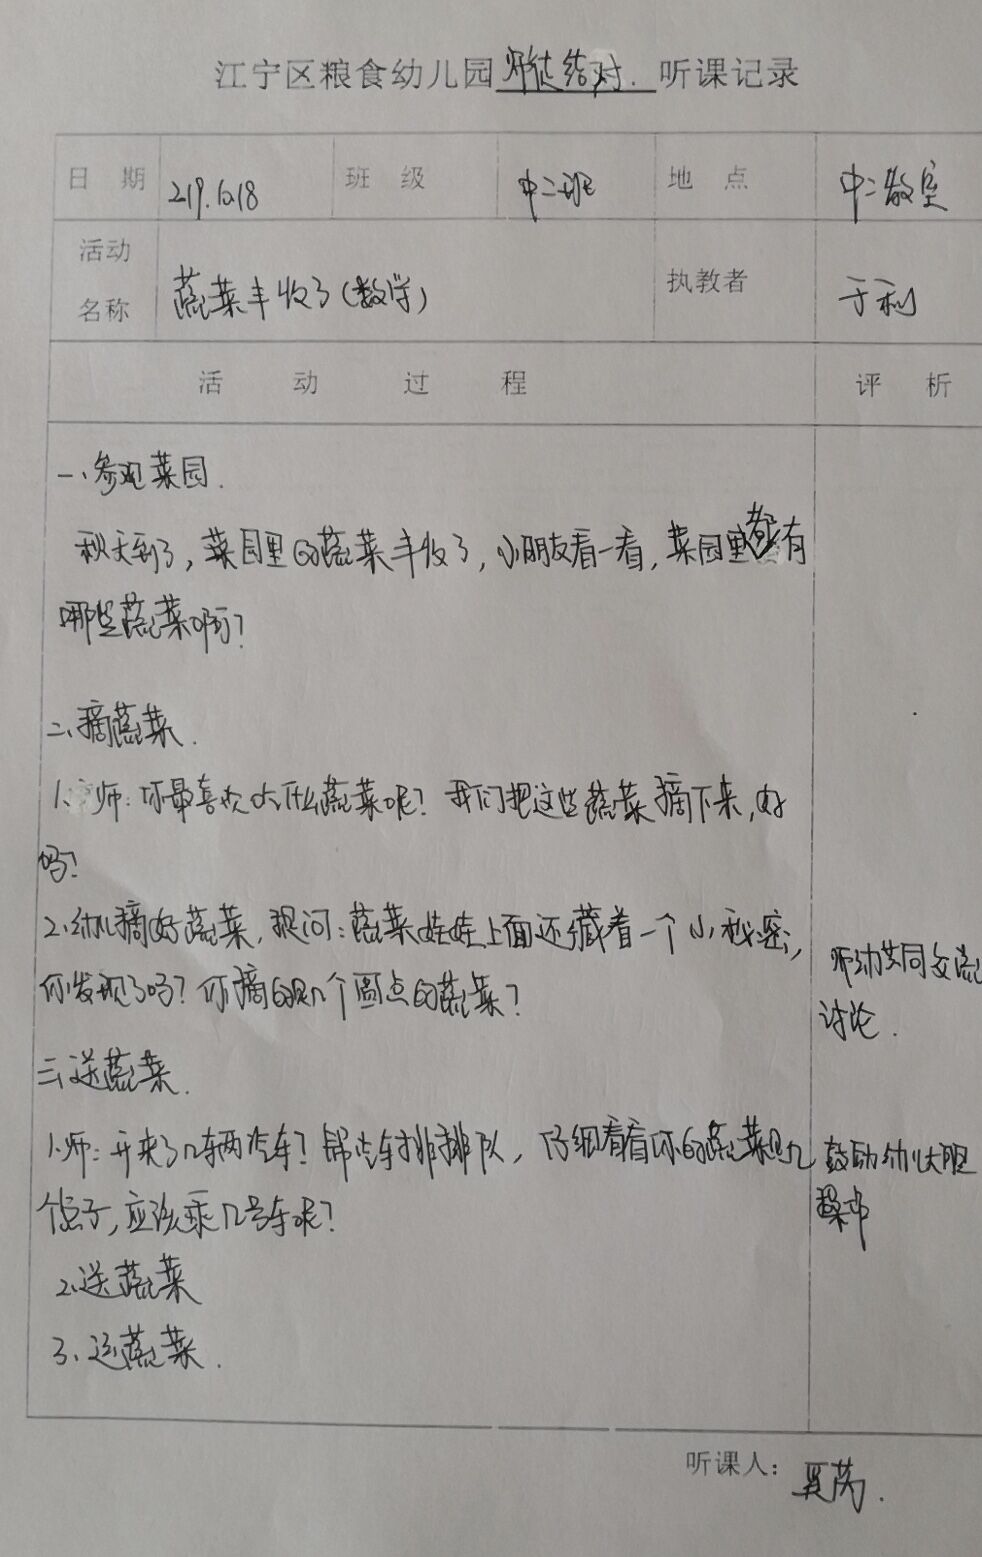 江宁区粮食幼儿园师徒结对.听课记录
日期 219.10.18 班级 中二班 地点 中二教室
活动名称 蔬菜丰收了(数学) 执教者 于利
活动过程 评析
一、参观菜园.
秋天到了,菜园里的蔬菜丰收了,小朋友看一看,菜园里都有
哪些蔬菜啊?
二、摘蔬菜.
1.师:你最喜欢吃什么蔬菜呢?我们把这些蔬菜摘下来,好
吗?
2.幼儿摘好蔬菜,提问:蔬菜娃娃上面还藏着一个小秘密,
你发现了吗?你摘的是几个圆点的蔬菜?
师幼共同交流
讨论.
三、送蔬菜.
1.师:开来了几辆汽车?帮汽车排排队,仔细看看你的蔬菜是几
个点子,应该乘几号车呢?
鼓励幼儿大胆
操作
2.送蔬菜
3、运蔬菜.
听课人:夏芮.